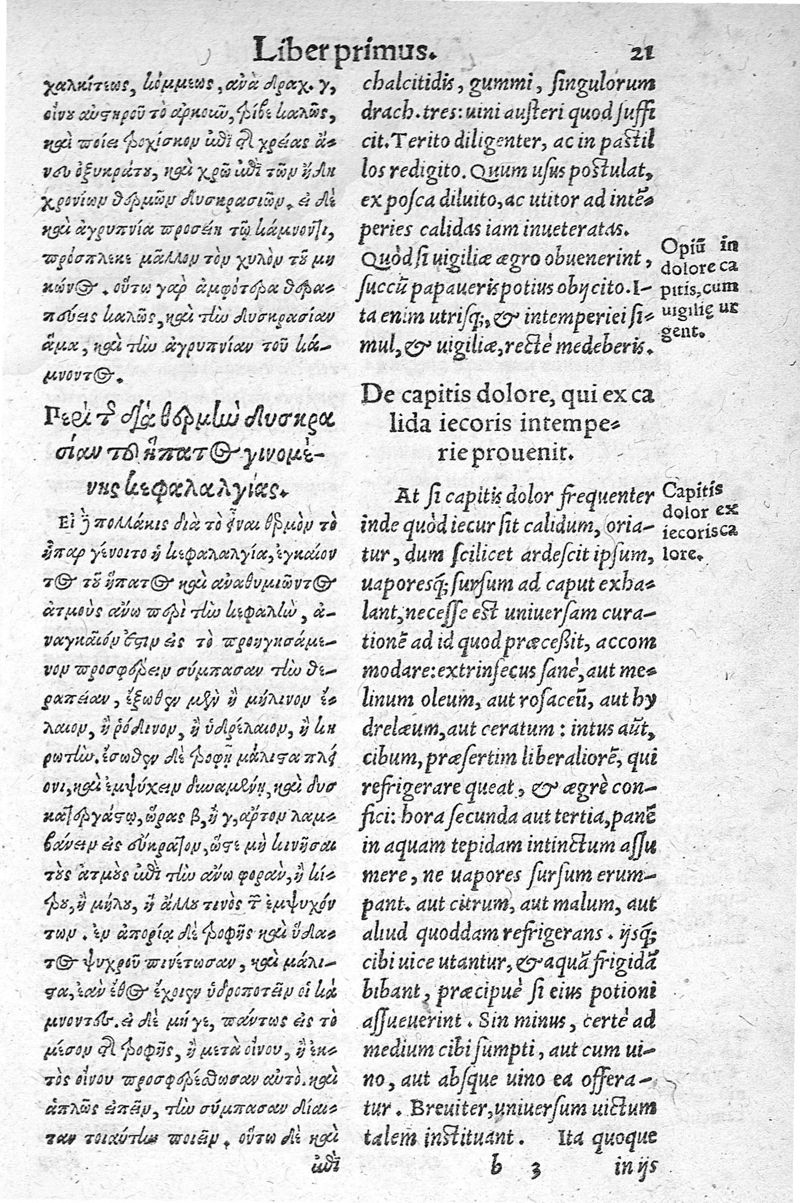 Liber primus. 21
χαλκίτεως, κόμμεως, ἀνὰ δραχ. γ,
οἴνου αὐστηροῦ τὸ ἀρκοῦν, τρῖβε καλῶς,
καὶ ποίει τροχίσκον καὶ ἐπὶ τῆς χρείας ἀ-
νευ ὀξυκράτου, καὶ χρῶ ἐπὶ τῶν ἤδη
χρονίων θερμῶν δυσκρασιῶν. εἰ δὲ
καὶ ἀγρυπνία προσείη τῷ κάμνοντι,
πρόσπλεκε μᾶλλον τὸν χυλὸν τοῦ μη
κώνος. οὕτω γὰρ ἀμφότερα θερα-
πεύεις καλῶς, καὶ τὴν δυσκρασίαν
ἅμα, καὶ τὴν ἀγρυπνίαν τοῦ κά-
μνοντος.
Περὶ τῆς διὰ θερμὴν δυσκρα
σίαν τοῦ ἥπατος γινομέ-
νης κεφαλαλγίας.
Εἰ δὲ πολλάκις διὰ τὸ εἶναι θερμὸν τὸ
ἧπαρ γένοιτο ἡ κεφαλαλγία, ἐγκαίον
τος τοῦ ἥπατος καὶ ἀναθυμιῶντος
ἀτμοὺς ἄνω περὶ τὴν κεφαλὴν, ἀ-
ναγκαῖόν ἐστιν εἰς τὸ προηγησάμε-
νον προσφέρειν σύμπασαν τὴν θε-
ραπείαν, ἔξωθεν μὲν ἢ μήλινον ἔ-
λαιον, ἢ ῥόδινον, ἢ ὑδρέλαιον, ἢ κη
ρωτήν. ἔσωθεν δὲ τροφῇ μάλιστα πλέ
ονι, καὶ ἐμψύχειν δυναμένῃ, καὶ δυσ
κατεργάστῳ, ὥρας β, ἢ γ, ἄρτον λαμ-
βάνειν εἰς εὔκρατον, ὥστε μὴ κινῆσαι
τοὺς ἀτμοὺς ἐπὶ τὴν ἄνω φορὰν, ἢ κί-
τρου, ἢ μήλου, ἢ ἄλλου τινὸς τῶν ἐμψυχόν
των. ἐν ἀπορίᾳ δὲ τροφῆς καὶ ὕδα-
τος ψυχροῦ πινέτωσαν, καὶ μάλι-
στα, ἐὰν ἔθος ἔχοιεν ὑδροποτεῖν οἱ κά
μνοντες. εἰ δὲ μήγε, πάντως εἰς τὸ
μέσον τῆς τροφῆς, ἢ μετὰ οἴνου, ἢ ἐκ-
τὸς οἴνου προσφερέσθωσαν αὐτό. καὶ
ἁπλῶς εἰπεῖν, τὴν σύμπασαν δίαι-
ταν τοιαύτην ποιεῖν. οὕτω δὲ καὶ
ἐπὶ
chalcitidis, gummi, singulorum
drach. tres: uini austeri quod suffi
cit. Terito diligenter, ac in pastil
los redigito. Quum usus postulat,
ex posca diluito, ac utitor ad intē-
peries calidas iam inueteratas.
Quòd si uigiliæ ægro obuenerint,
succū papaueris potius obijcito. I-
ta enim utrisq;, & intemperiei si-
mul, & uigiliæ, rectè medeberis.
De capitis dolore, qui ex ca
lida iecoris intempe-
rie prouenit.
At si capitis dolor frequenter
inde quòd iecur sit calidum, oria-
tur, dum scilicet ardescit ipsum,
uaporesq; sursum ad caput exha-
lant, necesse est uniuersam cura-
tionē ad id quod præceßit, accom
modare: extrinsecus sanè, aut me-
linum oleum, aut rosaceū, aut hy
drelæum, aut ceratum: intus aūt,
cibum, præsertim liberaliorē, qui
refrigerare queat, & ægrè con-
fici: hora secunda aut tertia, panē
in aquam tepidam intinctum assu
mere, ne uapores sursum erum-
pant. aut citrum, aut malum, aut
aliud quoddam refrigerans. ijsq;
cibi uice utantur, & aquā frigidā
bibant, præcipuè si eius potioni
assueuerint. Sin minus, certè ad
medium cibi sumpti, aut cum ui-
no, aut absque uino ea offera-
tur. Breuiter, uniuersum uictum
talem instituant. Ita quoque
b 3 in ijs
Opiū in
dolore ca
pitis, cum
uigilię ur
gent.
Capitis
dolor ex
iecoris ca
lore.